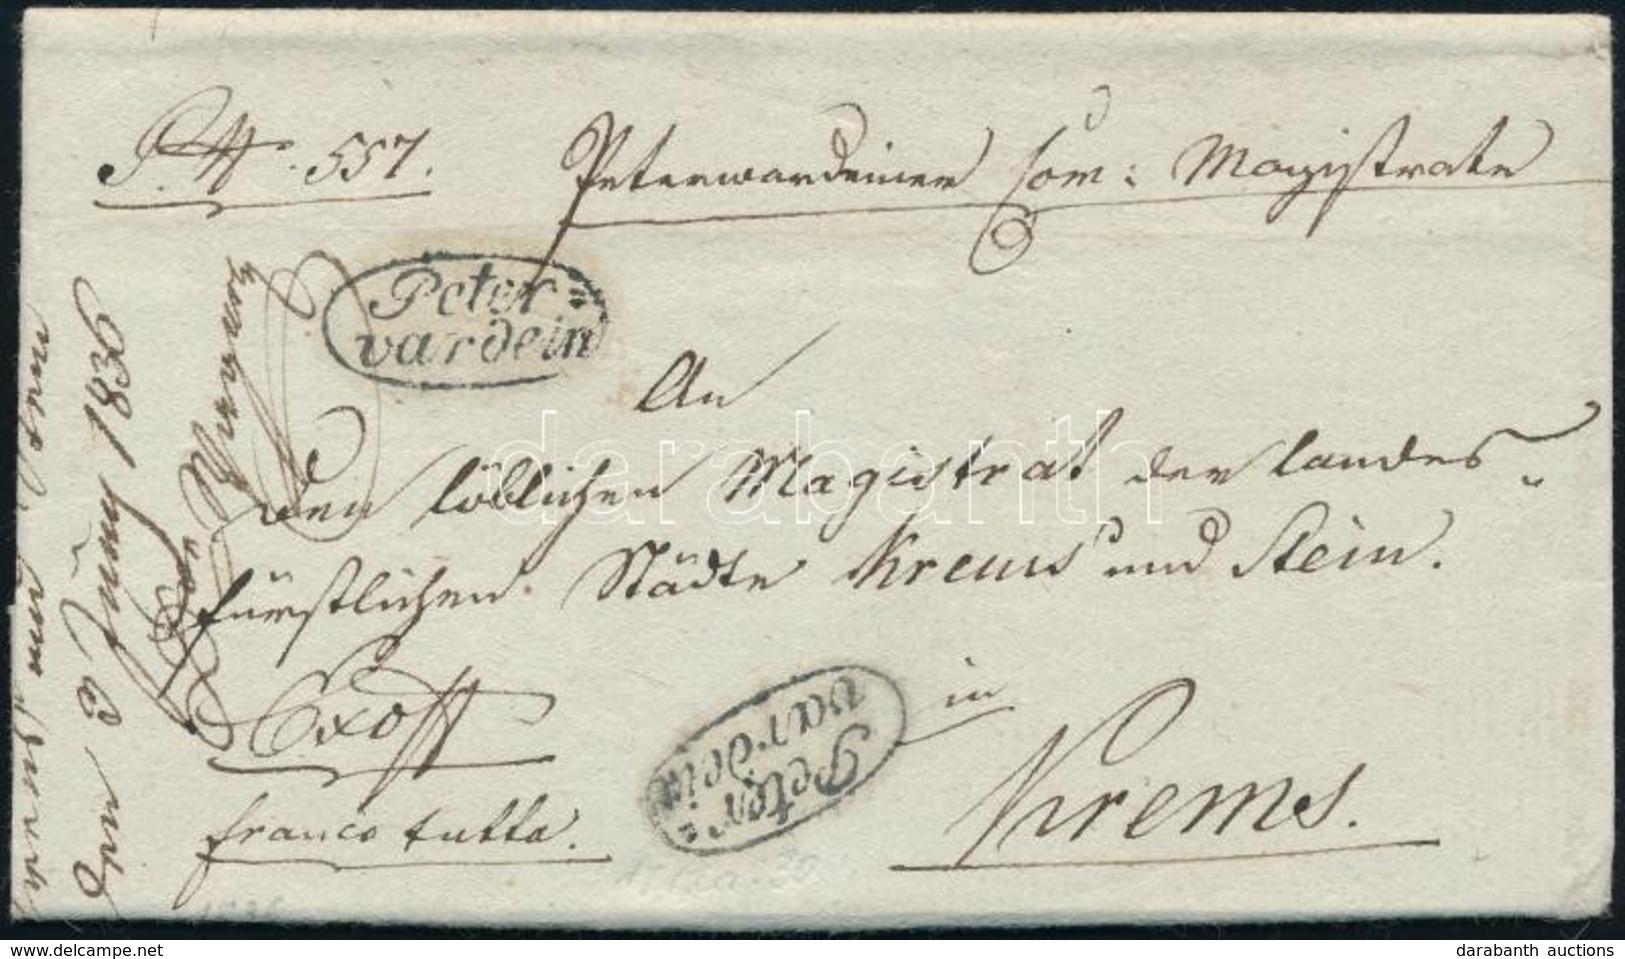 N. 557. Peterwardeiner Com: Magistrate
Peter=
vardein
An
den löblichen Magistrat der landes=
fürstlichen Städte Krems und Stein.
in
Krems.
Exoff
franco tutto.
Peter=
vardein
den 3 Juny 1836
von
darabanth
www.delcampe.net
darabanth auctions